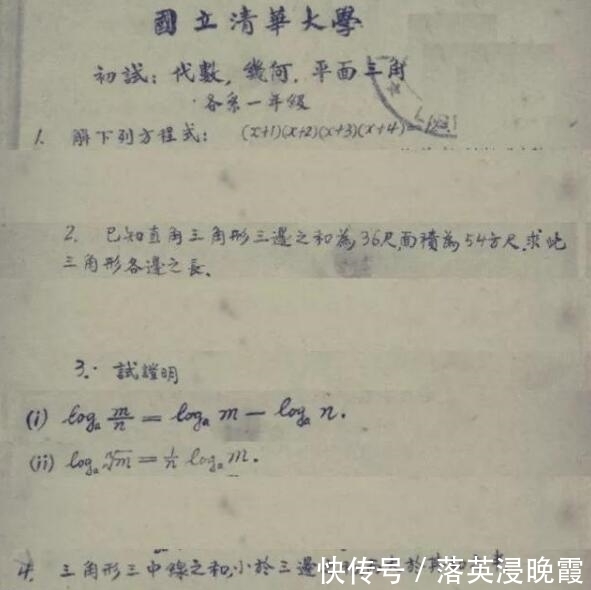 國立清華大學
初試：代數，幾何，平面三角
各系一年級
1. 解下列方程式：(x+1)(x+2)(x+3)(x+4)=
2. 已知直角三角形三邊之和為36尺，面積為54方尺，求此
三角形各邊之長。
3. 試證明
(i) logₐ m/n = logₐ m − logₐ n.
(ii) logₐ ⁿ√m = 1/n logₐ m.
4. 三角形三中線之和，小於三邊
快传号／落英浸晚霞